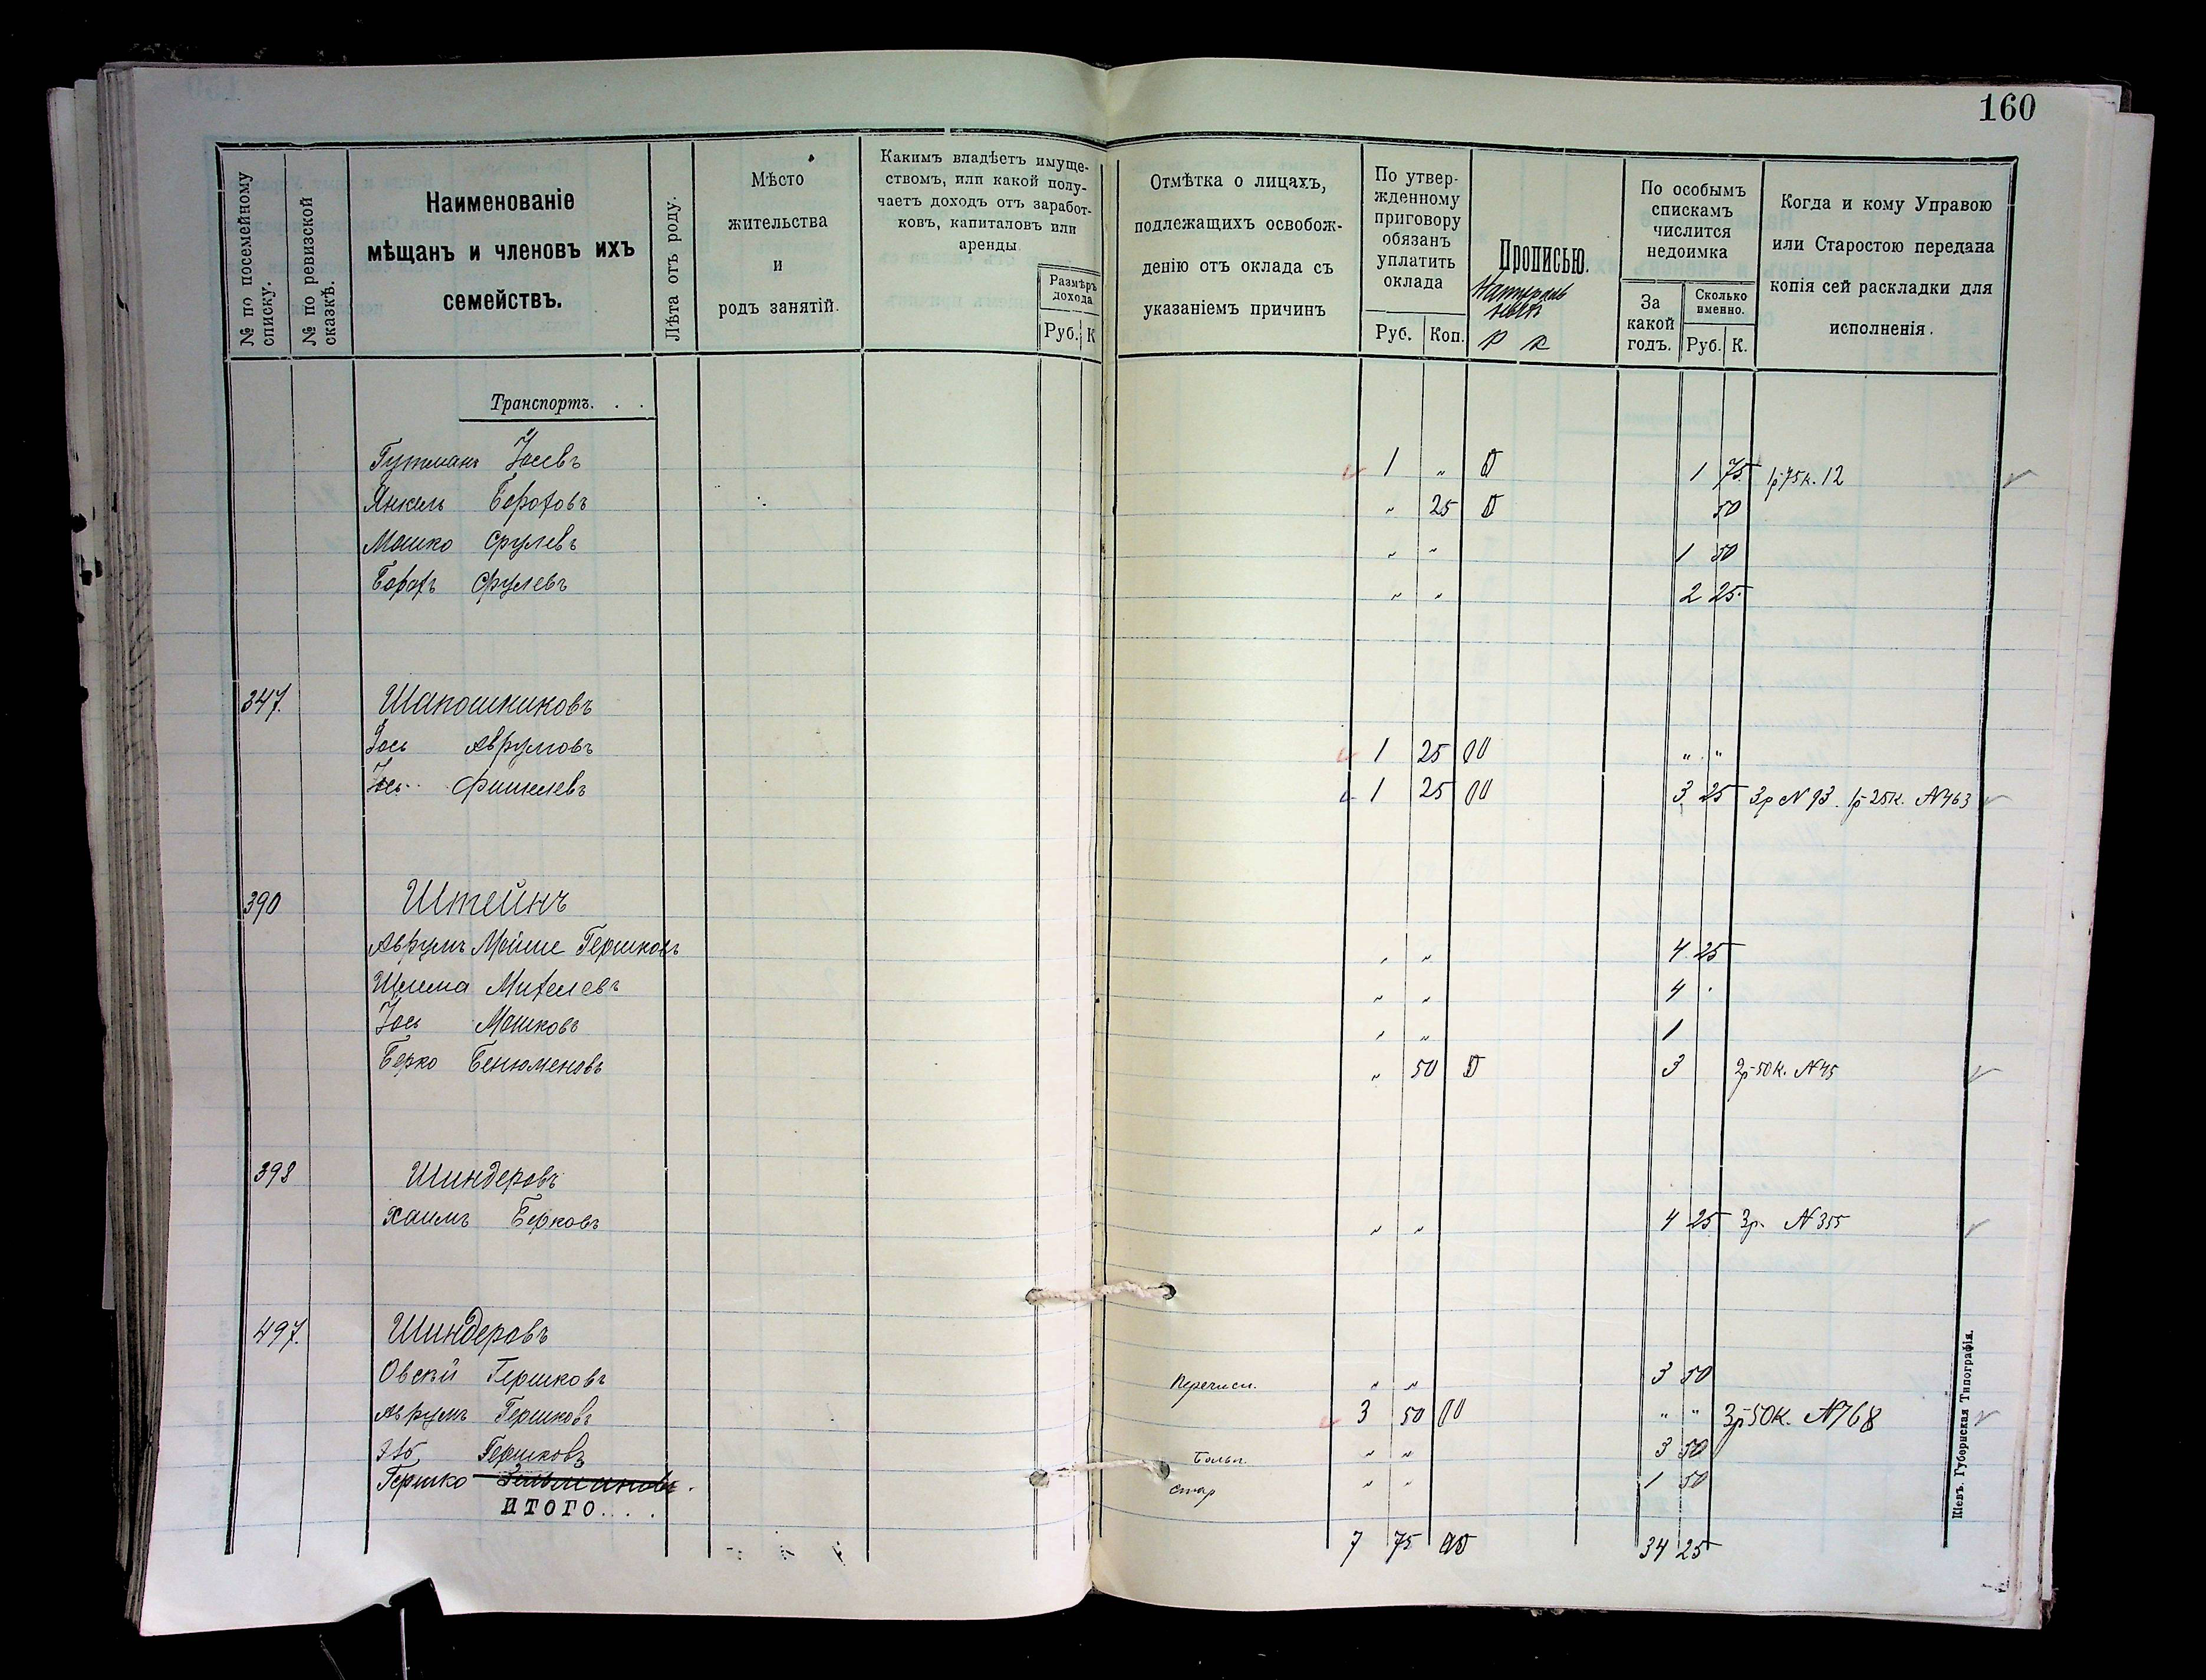 160
№ по посемейному списку.
№ по ревизской сказкѣ.
Наименованіе
мѣщанъ и членовъ ихъ
семействъ.
Лѣта отъ роду.
Мѣсто
жительства
и
родъ занятій.
Какимъ владѣетъ имуще-
ствомъ, или какой полу-
чаетъ доходъ отъ заработ-
ковъ, капиталовъ или
аренды
Размѣръ
дохода
Руб. К
Отмѣтка о лицахъ,
подлежащихъ освобож-
денію отъ оклада съ
указаніемъ причинъ
По утвер-
жденному
приговору
обязанъ
уплатить
оклада
Руб. Коп.
Прописью.
Р к
По особымъ
спискамъ
числится
недоимка
За
какой
годъ.
Сколько
именно.
Руб. К.
Когда и кому Управою
или Старостою передана
копія сей раскладки для
исполненія.
Транспортъ. . .
Гутманъ Іосевъ 1 „ 1 75 1р75к. 12
Янкель Бороховъ „ 25 50
Мошко Срулевъ „ „ 1 50
Борохъ Срулевъ „ „ 2 25
347. Шапошниковъ
Іось Аврумовъ 1 25 „ „
Іось Фишелевъ 1 25 3 25 3р N 93. 1р25к. N463
390 Штейнъ
Аврумъ Мойше Гершковъ „ „ 4 25
Шлема Михелевъ „ „ 4
Іось Мошковъ „ „ 1
Берко Бенюменовъ „ 50 3 2р50к. N45
398 Шиндеровъ
Хаимъ Берковъ „ „ 4 25 3р N 355
497. Шиндеровъ
Овсѣй Гершковъ Перечисл. „ „ 3 50
Аврумъ Гершковъ 3 50 „ „ 3р50к. N768
Гершковъ Больн. „ „ 3 50
Гершко стар „ „ 1 50
ИТОГО. . . .
7 75 34 25
Кіевъ. Губернская Типографія.